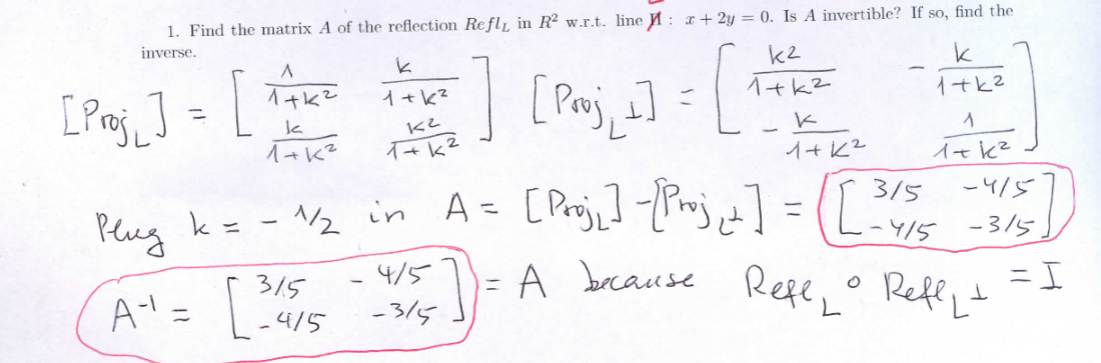 1. Find the matrix A of the reflection Refl_L in R² w.r.t. line L : x + 2y = 0. Is A invertible? If so, find the
inverse.
[Proj_L] = [ 1/(1+k²) k/(1+k²) ; k/(1+k²) k²/(1+k²) ] [Proj_L⊥] = [ k²/(1+k²) - k/(1+k²) ; - k/(1+k²) 1/(1+k²) ]
Plug k = - 1/2 in A = [Proj_L] - [Proj_L⊥] = [ 3/5 -4/5 ; -4/5 -3/5 ]
A⁻¹ = [ 3/5 - 4/5 ; - 4/5 -3/5 ] = A because Refl_L ∘ Refl_L⊥ = I